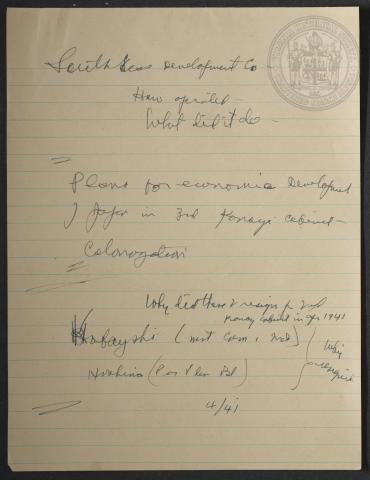 South Seas Development Co
How operated -
What did it do -
Plans for economic Development
of Japan in 3rd Konoye cabinet -
Colonization
Why did these 2 resign fr 2nd
Konoye Cabinet in Apr 1941
Kobayshi (mnt Com & Ind)
Hoshino (Pres Plan Bd)
Why
resigned
4/41